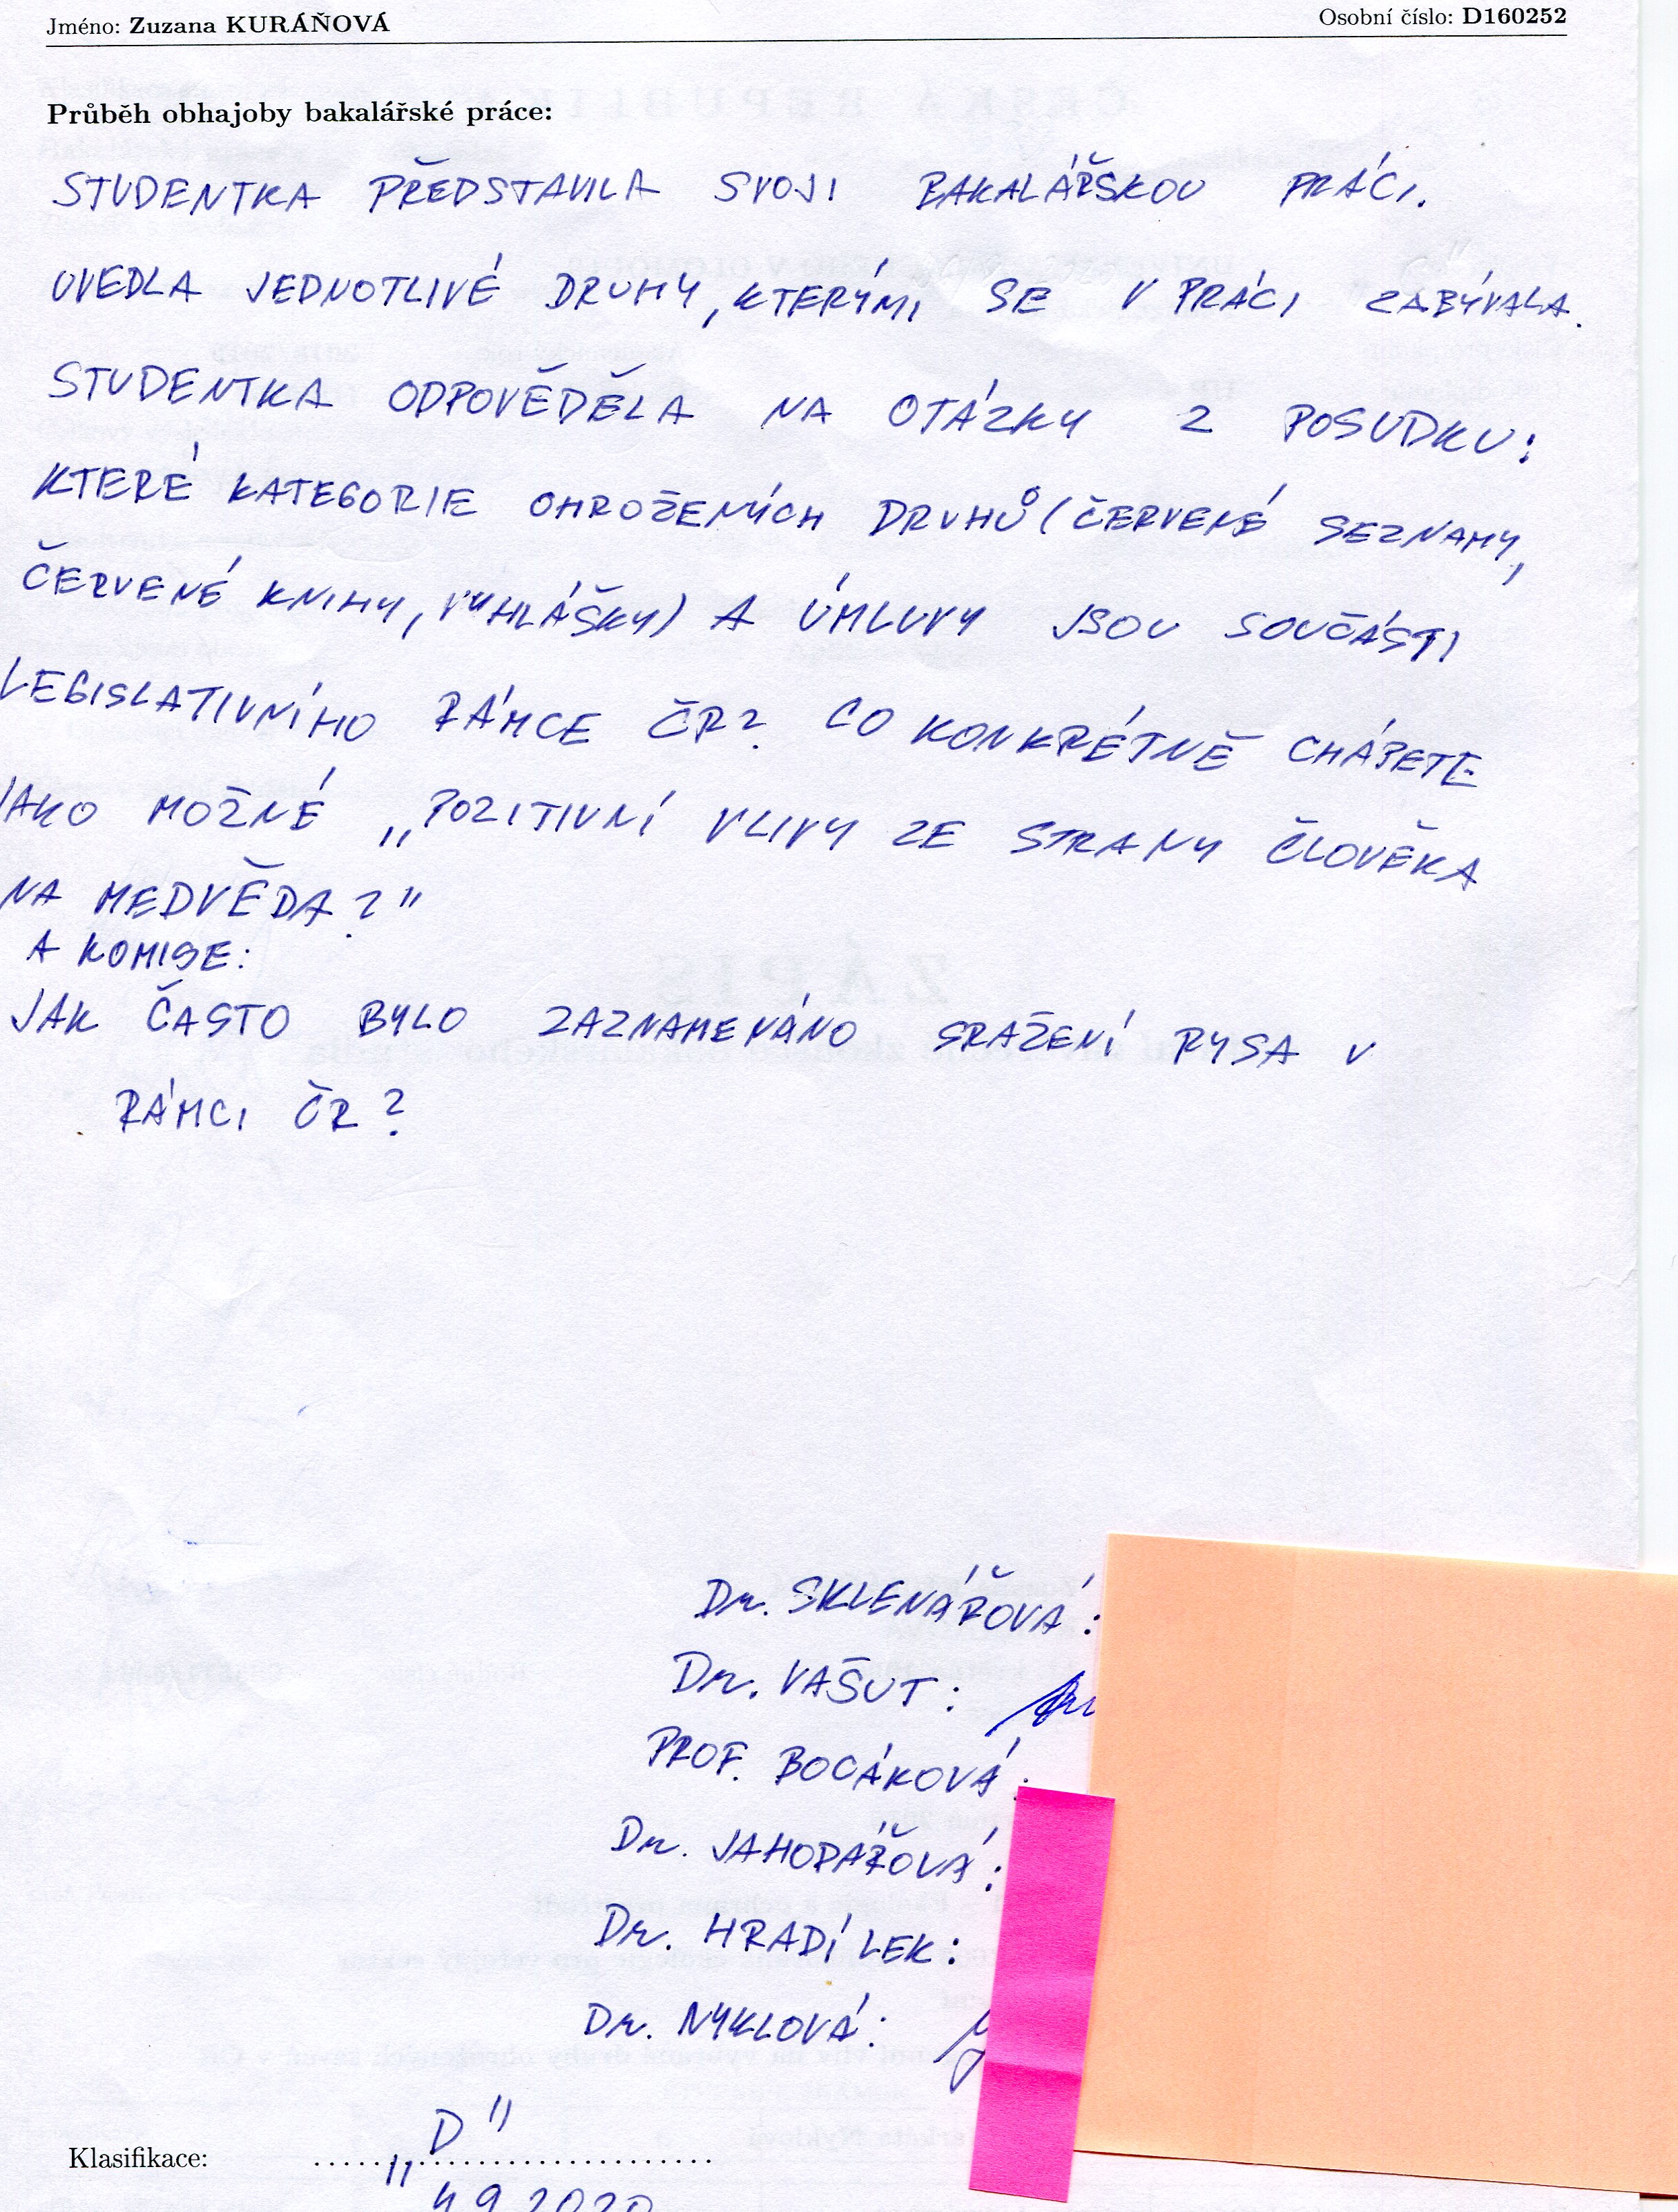 Jméno: Zuzana KURÁŇOVÁ Osobní číslo: D160252
Průběh obhajoby bakalářské práce:
STUDENTKA PŘEDSTAVILA SVOJI BAKALÁŘSKOU PRÁCI.
UVEDLA JEDNOTLIVÉ DRUHY, KTERÝMI SE V PRÁCI ZABÝVALA.
STUDENTKA ODPOVĚDĚLA NA OTÁZKY Z POSUDKU:
KTERÉ KATEGORIE OHROŽENÝCH DRUHŮ (ČERVENÉ SEZNAMY,
ČERVENÉ KNIHY, VYHLÁŠKY) A ÚMLUVY JSOU SOUČÁSTI
LEGISLATIVNÍHO RÁMCE ČR? CO KONKRÉTNĚ CHÁPETE
JAKO MOŽNÉ „POZITIVNÍ VLIVY ZE STRANY ČLOVĚKA
NA MEDVĚDA?"
A KOMISE:
JAK ČASTO BYLO ZAZNAMENÁNO SRAŽENÍ RYSA V
RÁMCI ČR?
Dr. SKLENÁŘOVÁ:
Dr. VAŠUT:
PROF. BOCÁKOVÁ:
Dr. JAHODÁŘOVÁ:
Dr. HRADÍLEK:
Dr. NYKLOVÁ:
Klasifikace: „D"